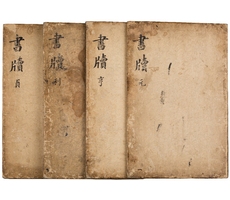 書牘 元
書牘 亨
書牘 利
書牘 貞